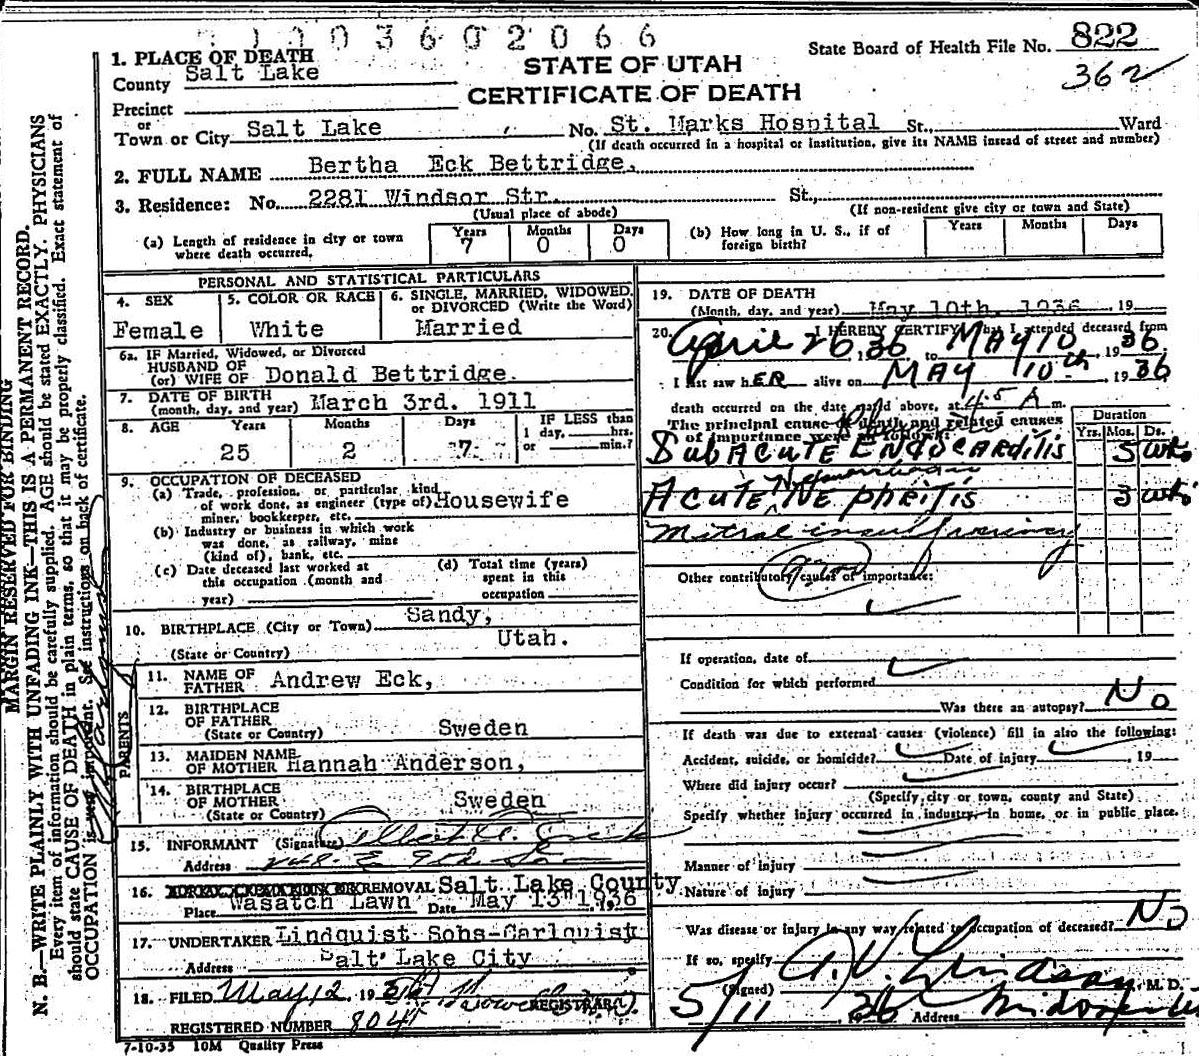 1003602066
State Board of Health File No. 822
362
STATE OF UTAH
CERTIFICATE OF DEATH
1. PLACE OF DEATH
County Salt Lake
Precinct
or
Town or City Salt Lake No. St. Marks Hospital St., Ward
(If death occurred in a hospital or institution, give its NAME insead of street and number)
2. FULL NAME Bertha Eck Bettridge,
3. Residence: No. 2281 Windsor Str. St.,
(Usual place of abode) (If non-resident give city or town and State)
(a) Length of residence in city or town where death occurred. Years 7 Months 0 Days 0
(b) How long in U. S., if of foreign birth? Years Months Days
PERSONAL AND STATISTICAL PARTICULARS
4. SEX Female
5. COLOR OR RACE White
6. SINGLE, MARRIED, WIDOWED, or DIVORCED (Write the Word) Married
6a. IF Married, Widowed, or Divorced
HUSBAND OF
(or) WIFE OF Donald Bettridge.
7. DATE OF BIRTH
(month, day, and year) March 3rd. 1911
8. AGE Years 25 Months 2 Days 7 IF LESS than 1 day, hrs. or min.?
9. OCCUPATION OF DECEASED
(a) Trade, profession, or particular kind of work done, as engineer (type of) miner, bookkeeper, etc. Housewife
(b) Industry or business in which work was done, as railway, mine (kind of), bank, etc.
(c) Date deceased last worked at this occupation (month and year)
(d) Total time (years) spent in this occupation
10. BIRTHPLACE (City or Town) Sandy,
(State or Country) Utah.
PARENTS
11. NAME OF FATHER Andrew Eck,
12. BIRTHPLACE OF FATHER (State or Country) Sweden
13. MAIDEN NAME OF MOTHER Hannah Anderson,
14. BIRTHPLACE OF MOTHER (State or Country) Sweden
15. INFORMANT (Signature)
Address
16. REMOVAL Salt Lake County
Place Wasatch Lawn Date May 13" 1936
17. UNDERTAKER Lindquist Sons-Carlquist
Address Salt Lake City
18. FILED May 12 1936
REGISTRAR
REGISTERED NUMBER 804
7-10-35 10M Quality Press
19. DATE OF DEATH
(Month, day, and year) May 10th. 1936 19
20. I HEREBY CERTIFY that I attended deceased from
April 26 1936 to MAY 10 1936.
I last saw hER alive on MAY 10th 1936
death occurred on the date stated above, at 4.5 A m.
The principal cause of death and related causes of importance were as follows:
Duration
Yrs. Mos. Ds.
SubACUTE ENdOCARdITIS 5 wks
ACUTE Hemorrhagic NEphRITIS 3 wks
Mitral insufficiency
Other contributory causes of importance:
If operation, date of
Condition for which performed
Was there an autopsy? No
If death was due to external causes (violence) fill in also the following:
Accident, suicide, or homicide? Date of injury 19
Where did injury occur?
(Specify city or town, county and State)
Specify whether injury occurred in industry, in home, or in public place.
Manner of injury
Nature of injury
Was disease or injury in any way related to occupation of deceased? No
If so, specify
(Signed) A. V. Lindsay, M. D.
5/11 1936 Address
MARGIN RESERVED FOR BINDING
N. B.—WRITE PLAINLY WITH UNFADING INK—THIS IS A PERMANENT RECORD.
Every item of information should be carefully supplied. AGE should be stated EXACTLY. PHYSICIANS
should state CAUSE OF DEATH in plain terms, so that it may be properly classified. Exact statement of
OCCUPATION is very important. See instructions on back of certificate.